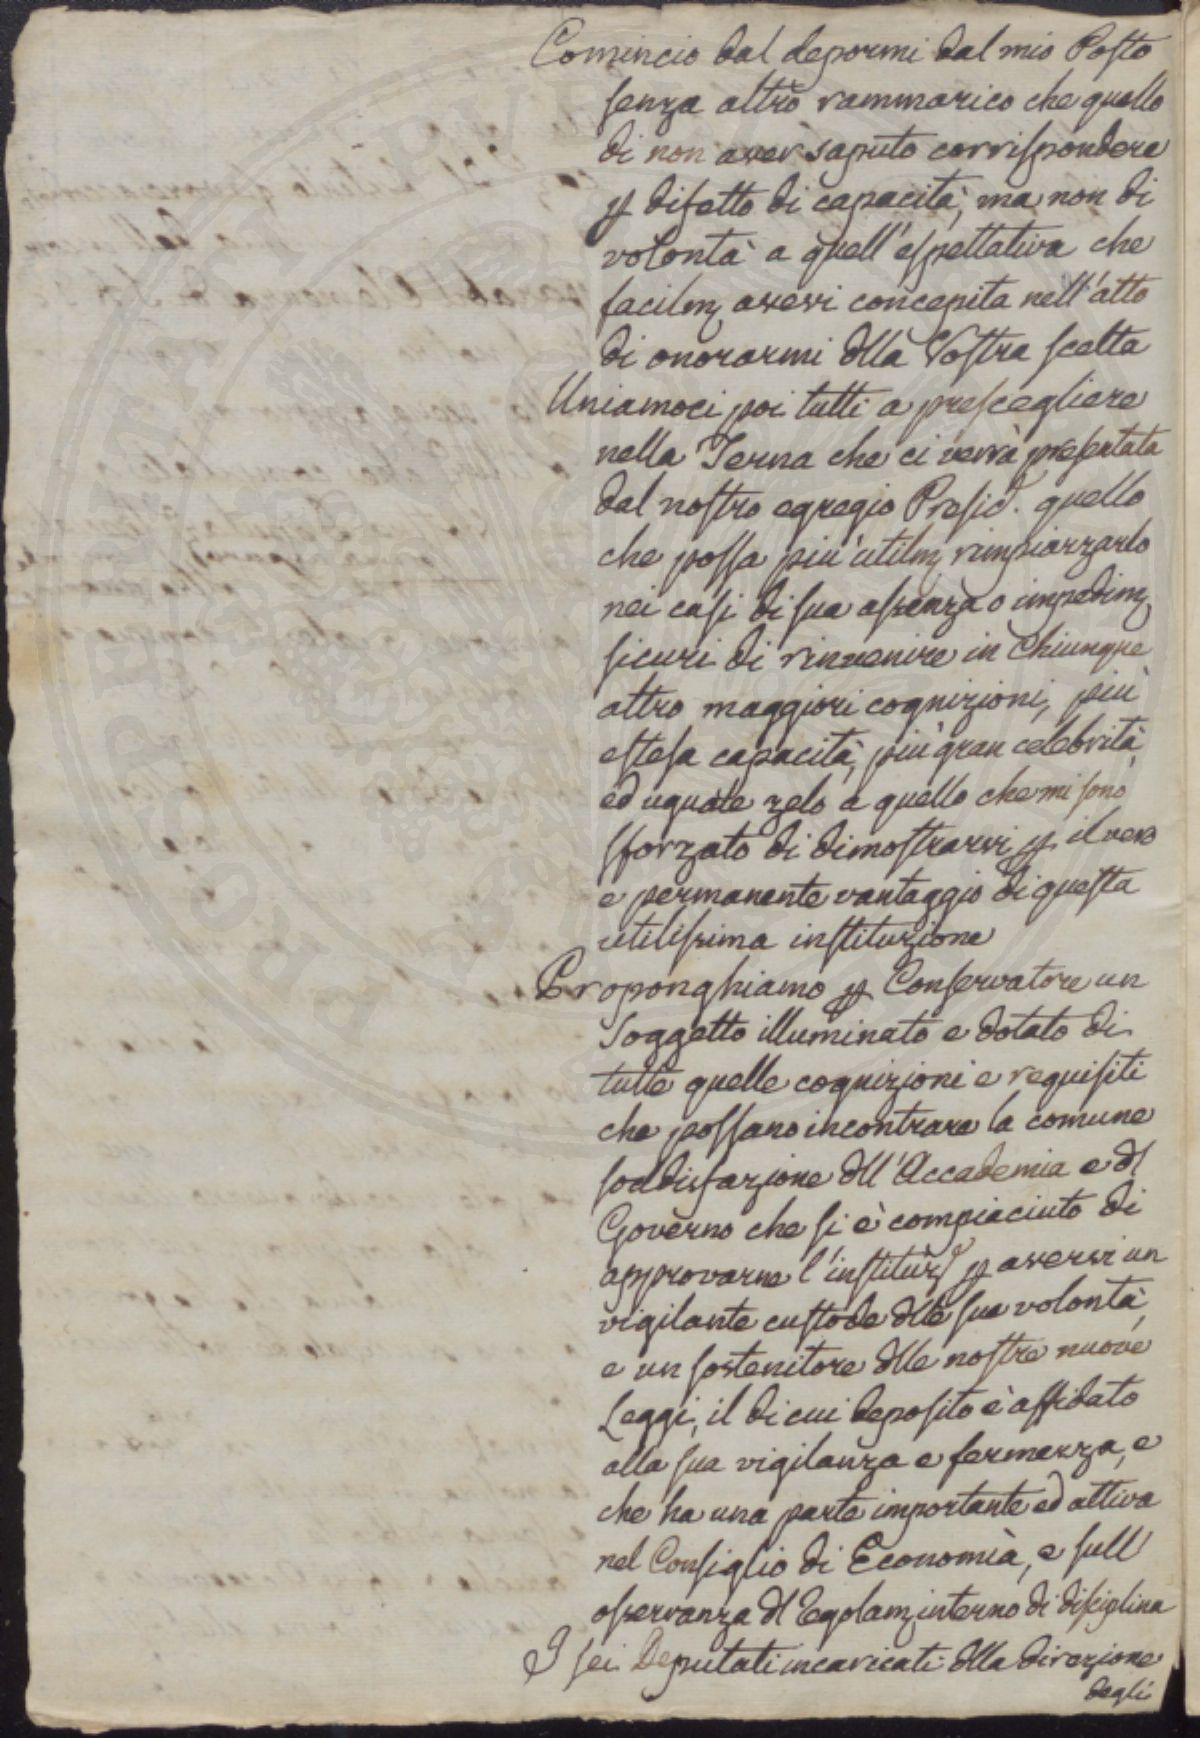 Comincio dal depormi dal mio Posto
senza altro rammarico che quello
di non aver saputo corrispondere
p difetto di capacità, ma non di
volontà a quell'espettativa che
facilm avevi concepita nell'atto
di onorarmi dlla Vostra scelta
Uniamoci poi tutti a prescegliere
nella Terna che ci verrà presentata
dal nostro egregio Presid. quello
che possa più utilm rimpiazzarlo
nei casi di sua assenza o impedim
sicuri di rinvenire in chiunque
altro maggiori cognizioni, più
estesa capacità, più gran celebrità,
ed uguale zelo a quello che mi sono
sforzato di dimostrarvi p il vero
e permanente vantaggio di questa
utilissima instituzione
Proponghiamo p Conservatore un
Soggetto illuminato e dotato di
tutte quelle cognizioni e requisiti
che possano incontrare la comune
soddisfazione dll'Accademia e dl
Governo che si è compiaciuto di
approvarne l'instituz p avervi un
vigilante custode dlle sua volontà,
e un sostenitore dlle nostre nuove
Leggi, il di cui deposito è affidato
alla sua vigilanza e fermezza, e
che ha una parte importante ed attiva
nel Consiglio di Economia, e sull
osservanza dl Regolam interno di disciplina
I sei Deputati incaricati dlla direzione
degli